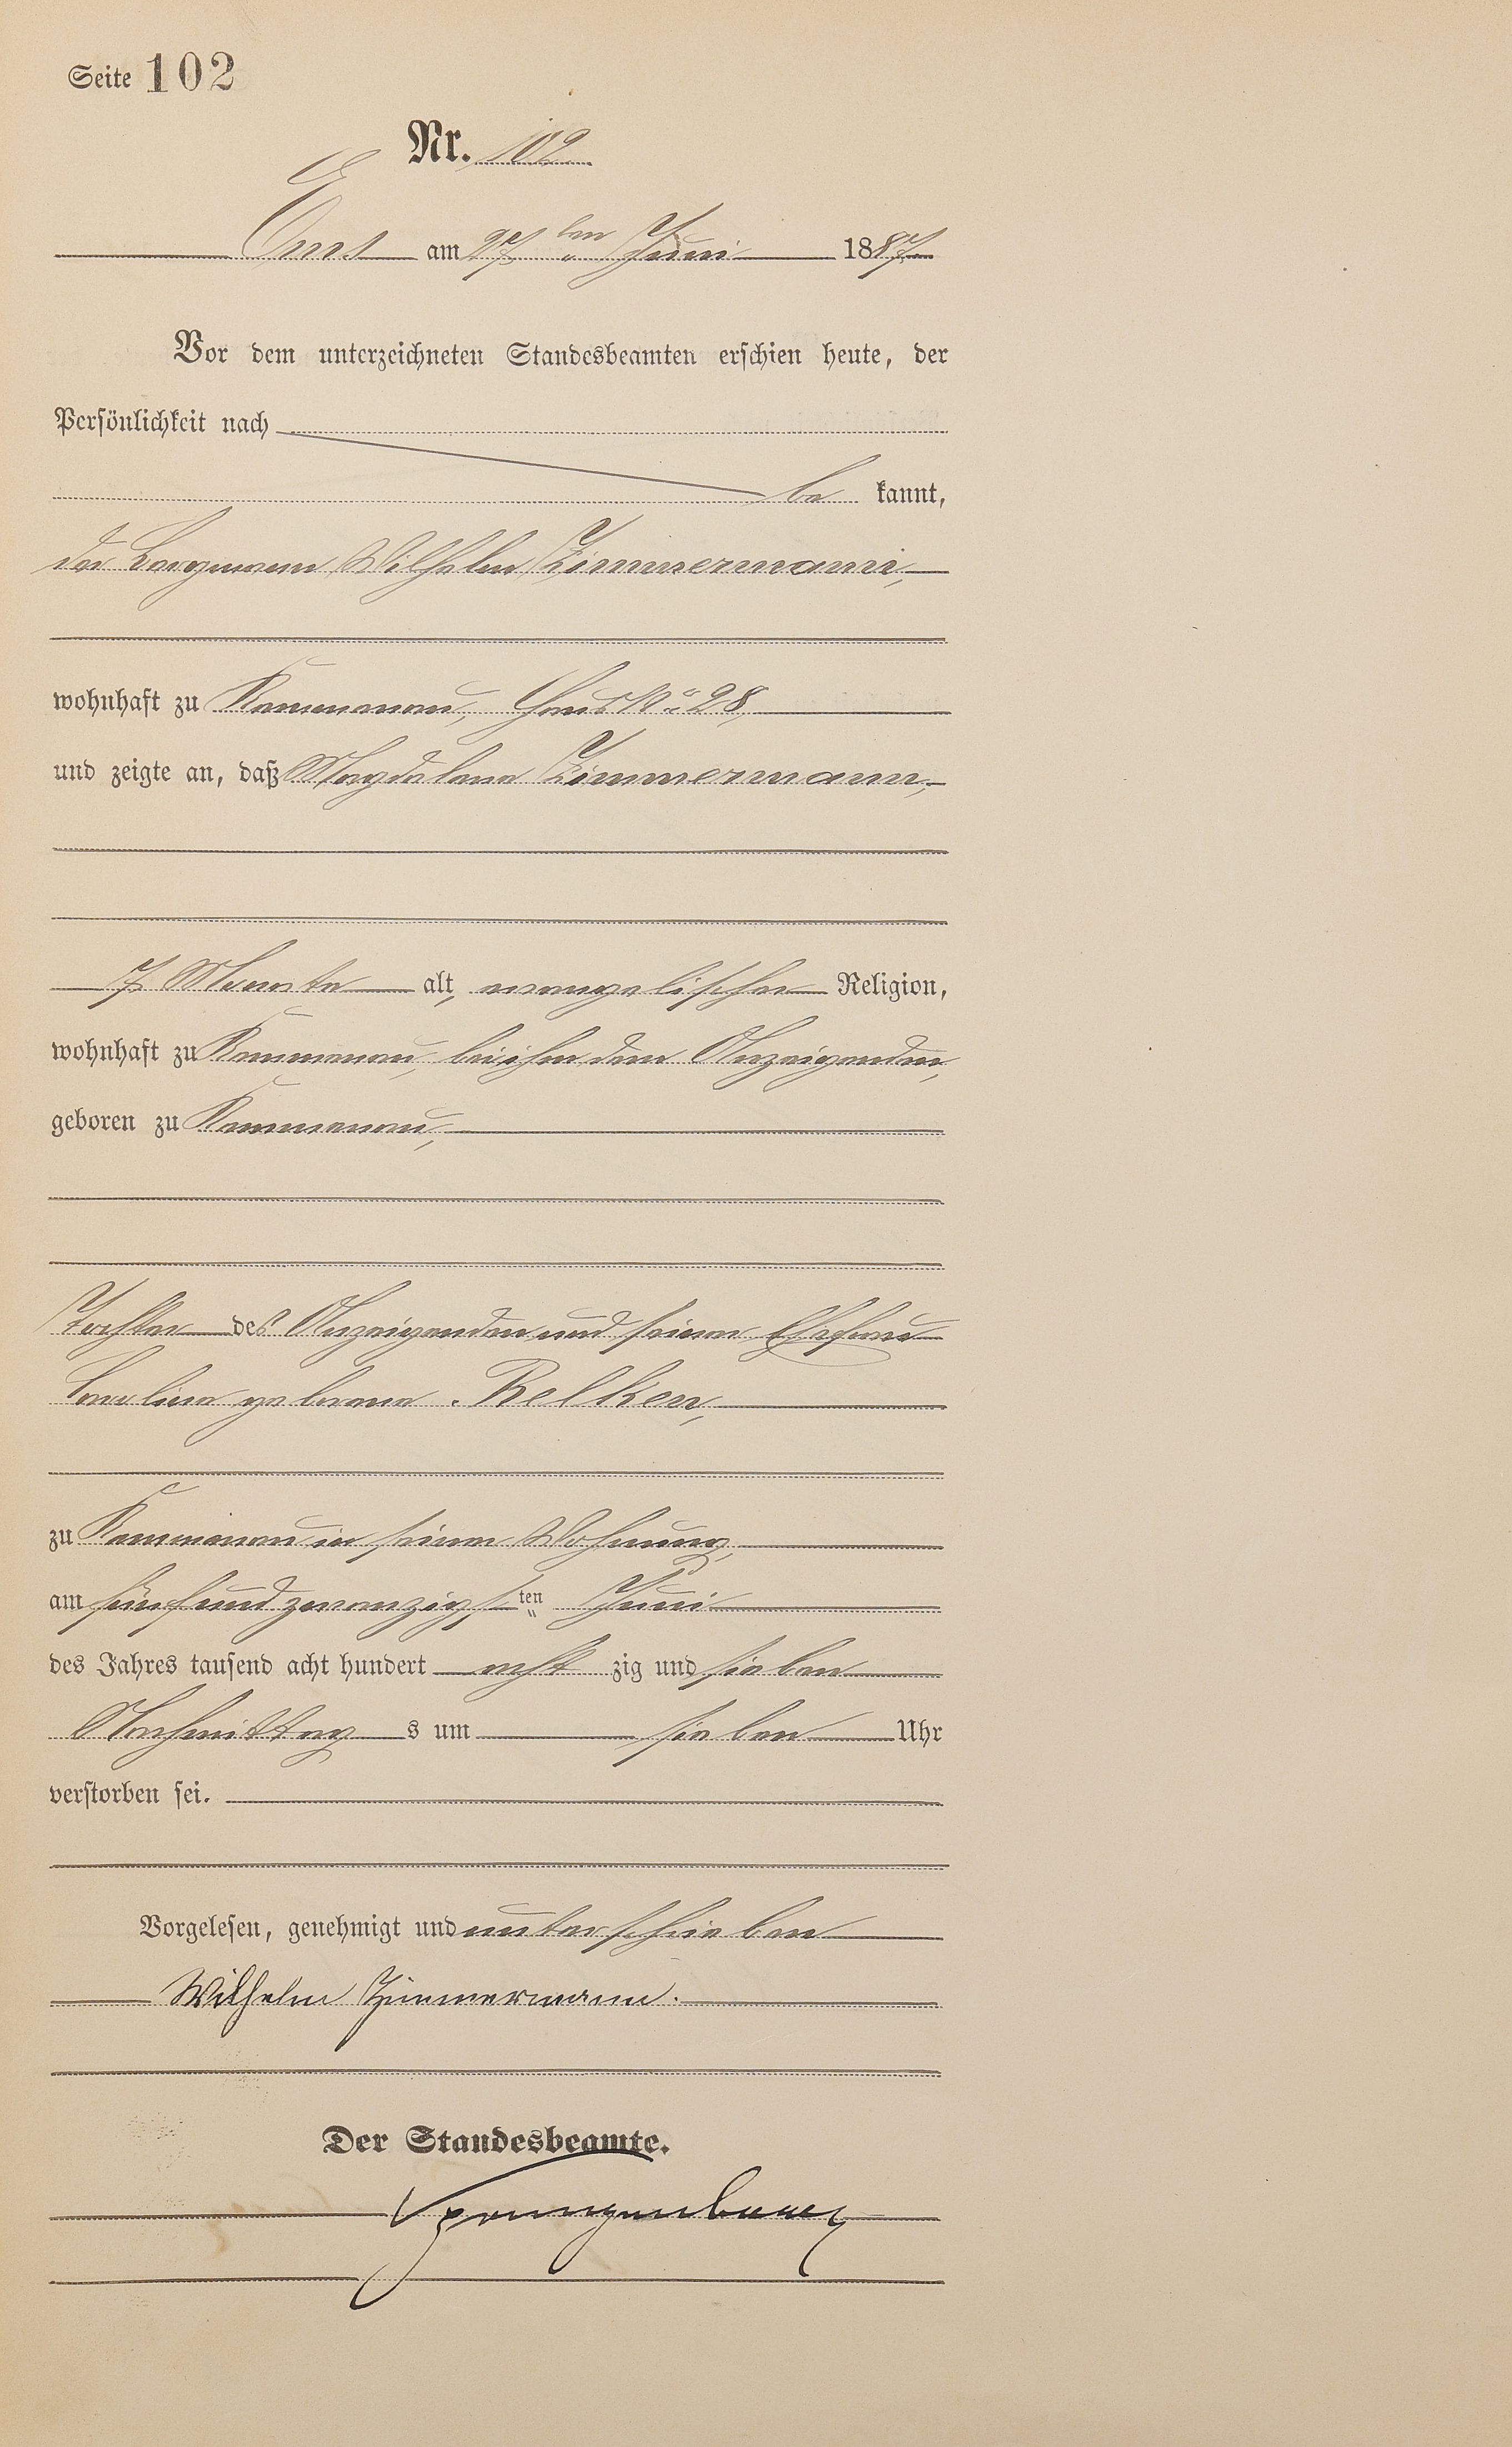 Seite 102
Nr. 102
Ems am 27ten Juni 1887
Vor dem unterzeichneten Standesbeamten erschien heute, der
Persönlichkeit nach
be kannt,
der Bergmann Wilhelm Zimmermann,
wohnhaft zu Kemmenau, Haus No 28,
und zeigte an, daß Magdalena Zimmermann,
7 Monate alt, evangelischer Religion,
wohnhaft zu Kemmenau, bei ihm dem Anzeigenden,
geboren zu Kemmenau,
Tochter des Anzeigenden und seiner Ehefrau
geborene Relken,
zu Kemmenau in seiner Wohnung,
am fünfundzwanzigsten Juni
des Jahres tausend acht hundert acht zig und sieben
Nachmittag s um sieben Uhr
verstorben sei.
Vorgelesen, genehmigt und unterschrieben
Wilhelm Zimmermann.
Der Standesbeamte.
Spangenberg